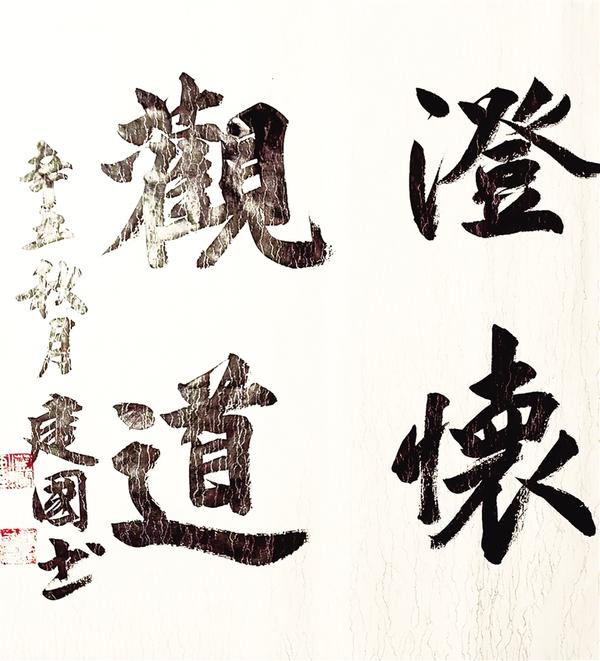 澄懷
觀道
辛丑秋月建國书